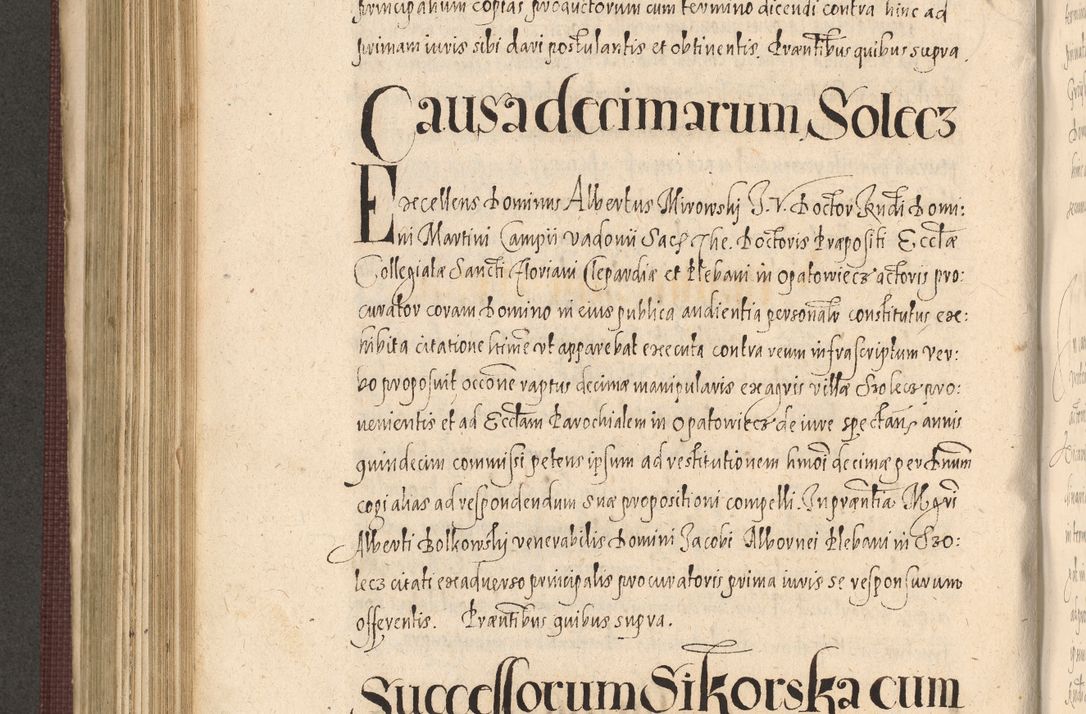 principalium copias productorum cum termino dicendi contra hinc ad
primam iuris sibi dari postulantis et obtinentis. Præntibus quibus supra.
Causa decimarum Solecz
Excellens Dominus Albertus Mirowski J. V. Doctor Rndi Domi:
ni Martini Campii Vadovii Sacr. The. Doctoris Præpositi Eccłæ
Collegiatæ Sancti Floriani Clepardiæ et Plebani in Opatowiecz actoris pro:
curator coram Domino in eius publica audientia personalr constitutus exe:
hibita citatione ltime vt apparebat executa contra reum infrascriptum ver:
bo proposuit occone raptus decimæ manipularis ex agris villæ Szolecz pro:
uenientis et ad Ecctam Parochialem in Opatowiecz de iure spectans annis
quindecim commissi petens ipsum ad restitutionem hmoi decimæ per Dnum
cogi alias ad respondendum suæ propositioni compelli. In præntia Mgri
Alberti Bolkowski venerabilis Domini Jacobi Albornei Plebani in Szo:
lecz citati ex aduerso principalis procuratoris prima iuris se responsurum
offerentis. Præntibus quibus supra.
Successorum Sikorska cum